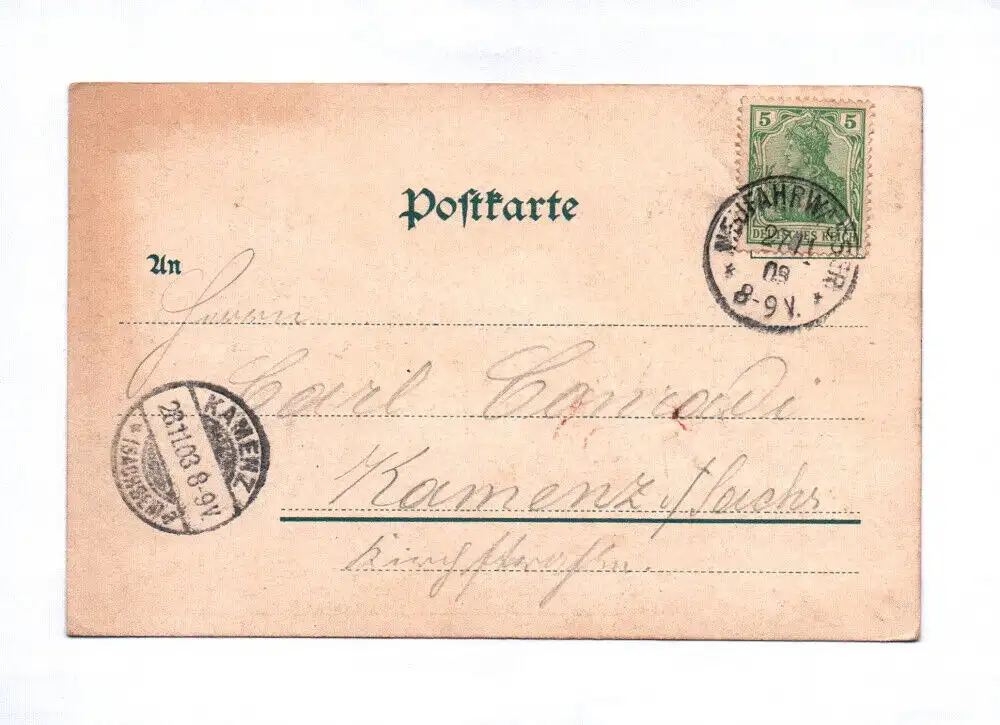 5 5
DEUTSCHES REICH
NEUFAHRWASSER
27.11
03
8-9V.
Postkarte
An
Herrn
Carl Conradi
Kamenz i/Sachs
Kirchstrasse
KAMENZ
28.11.03 8-9V.
* (SACHSEN)